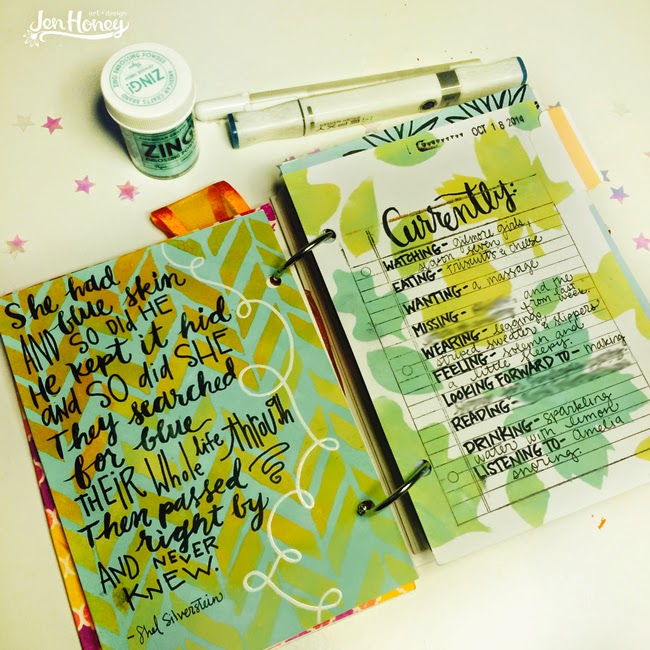 art + design
Jen Honey
AMERICAN CRAFTS BRAND
ZING!
ZING!
She had
blue skin
AND SO DID HE
He kept it hid
and SO did SHE
They searched
for blue
THEIR Whole life through
Then passed
right by
AND NEVER
KNEW.
-Shel Silverstein
OCT 18 2014
Currently:
WATCHING- gilmore girls,
season seven
EATING- triscuits & cheese
WANTING- a massage
MISSING- and me
from last
WEARING- leggings, week.
striped sweater & slippers
FEELING- solemn and
a little sleepy.
LOOKING FORWARD TO- making
READING-
DRINKING- sparkling
water with lemon
LISTENING TO- Amelia
snoring.